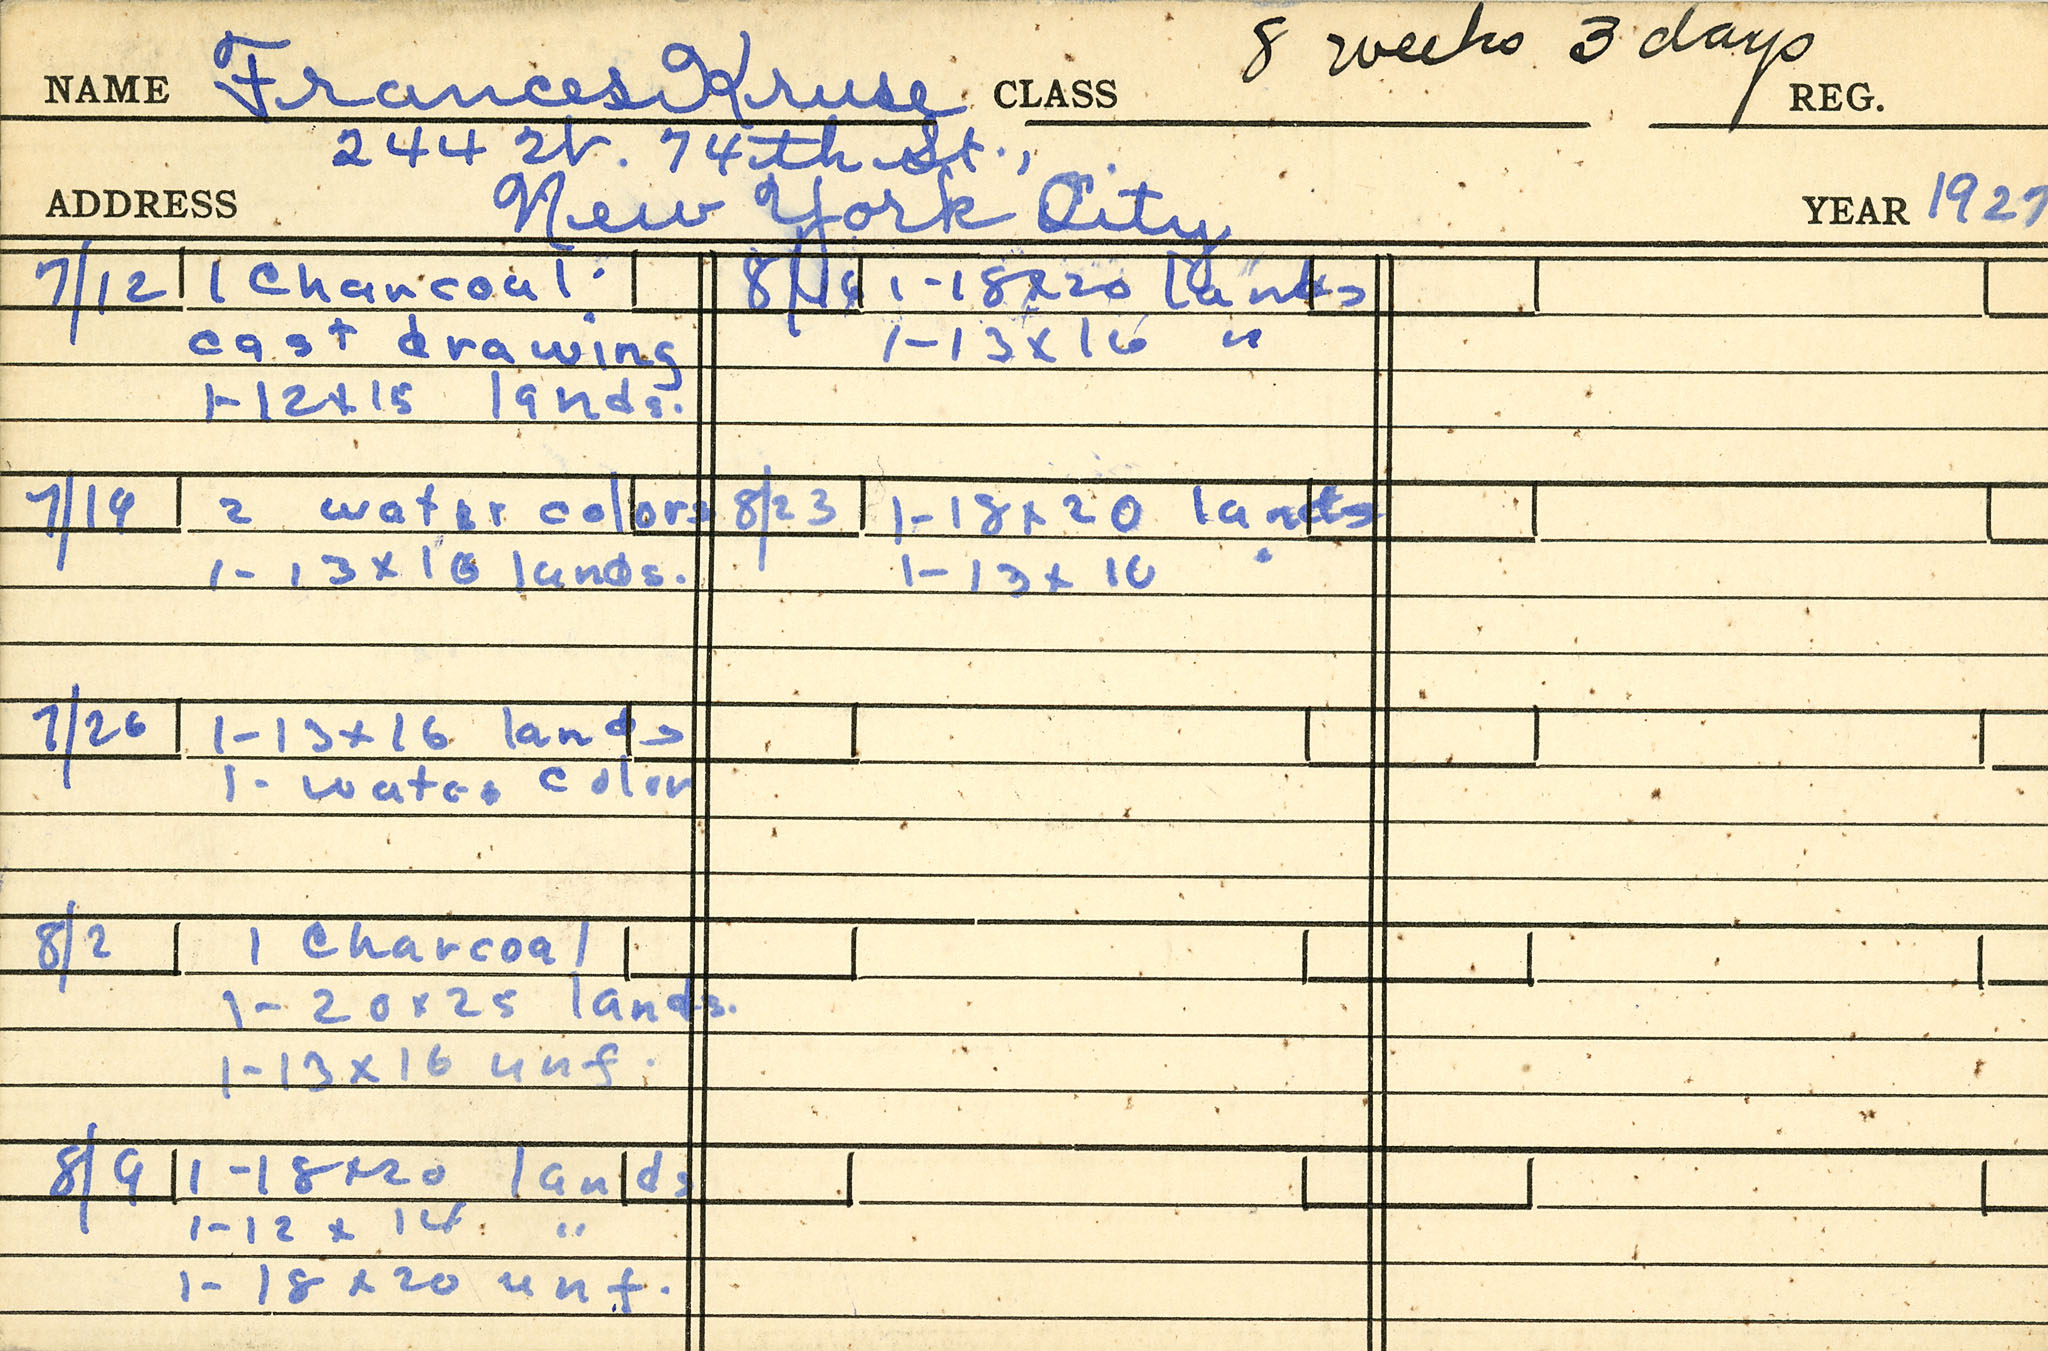 8 weeks 3 days
NAME Frances Kruse CLASS REG.
244 W. 74th St.,
ADDRESS New York City YEAR 1927
7/12 1 Charcoal
cast drawing
1-12x15 lands.
7/19 2 water colors
1-13x16 lands.
7/26 1-13x16 lands
1- water color
8/2 1 Charcoal
1-20x25 lands.
1-13x16 unf.
8/9 1-18x20 lands
1-12x14 "
1-18x20 unf.
8/16 1-18x20 lands
1-13x16 "
8/23 1-18x20 lands
1-13x16 "